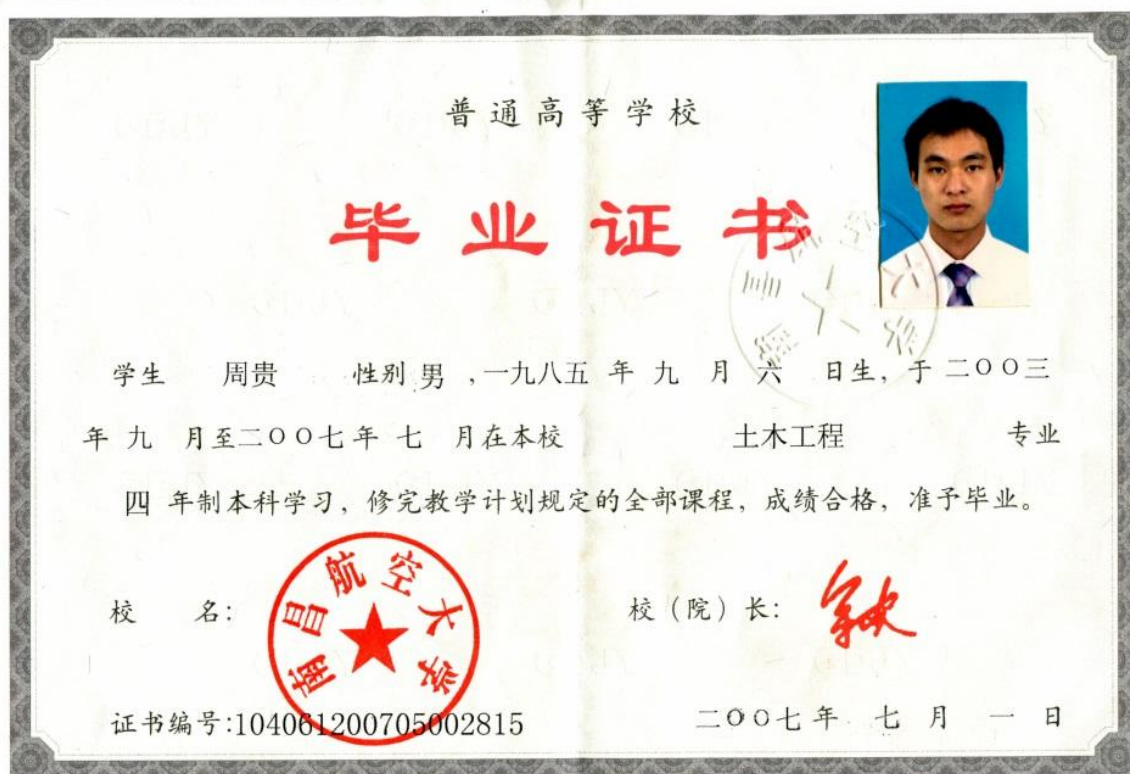 普通高等学校
毕业证书
学生 周贵 性别 男 ,一九八五 年 九 月 六 日生, 于 二〇〇三
年 九 月至二〇〇七年 七 月在本校 土木工程 专业
四 年制本科学习, 修完教学计划规定的全部课程, 成绩合格, 准予毕业。
校 名: 校（院）长:
南昌航空大学
证书编号:104061200705002815 二〇〇七年 七 月 一 日